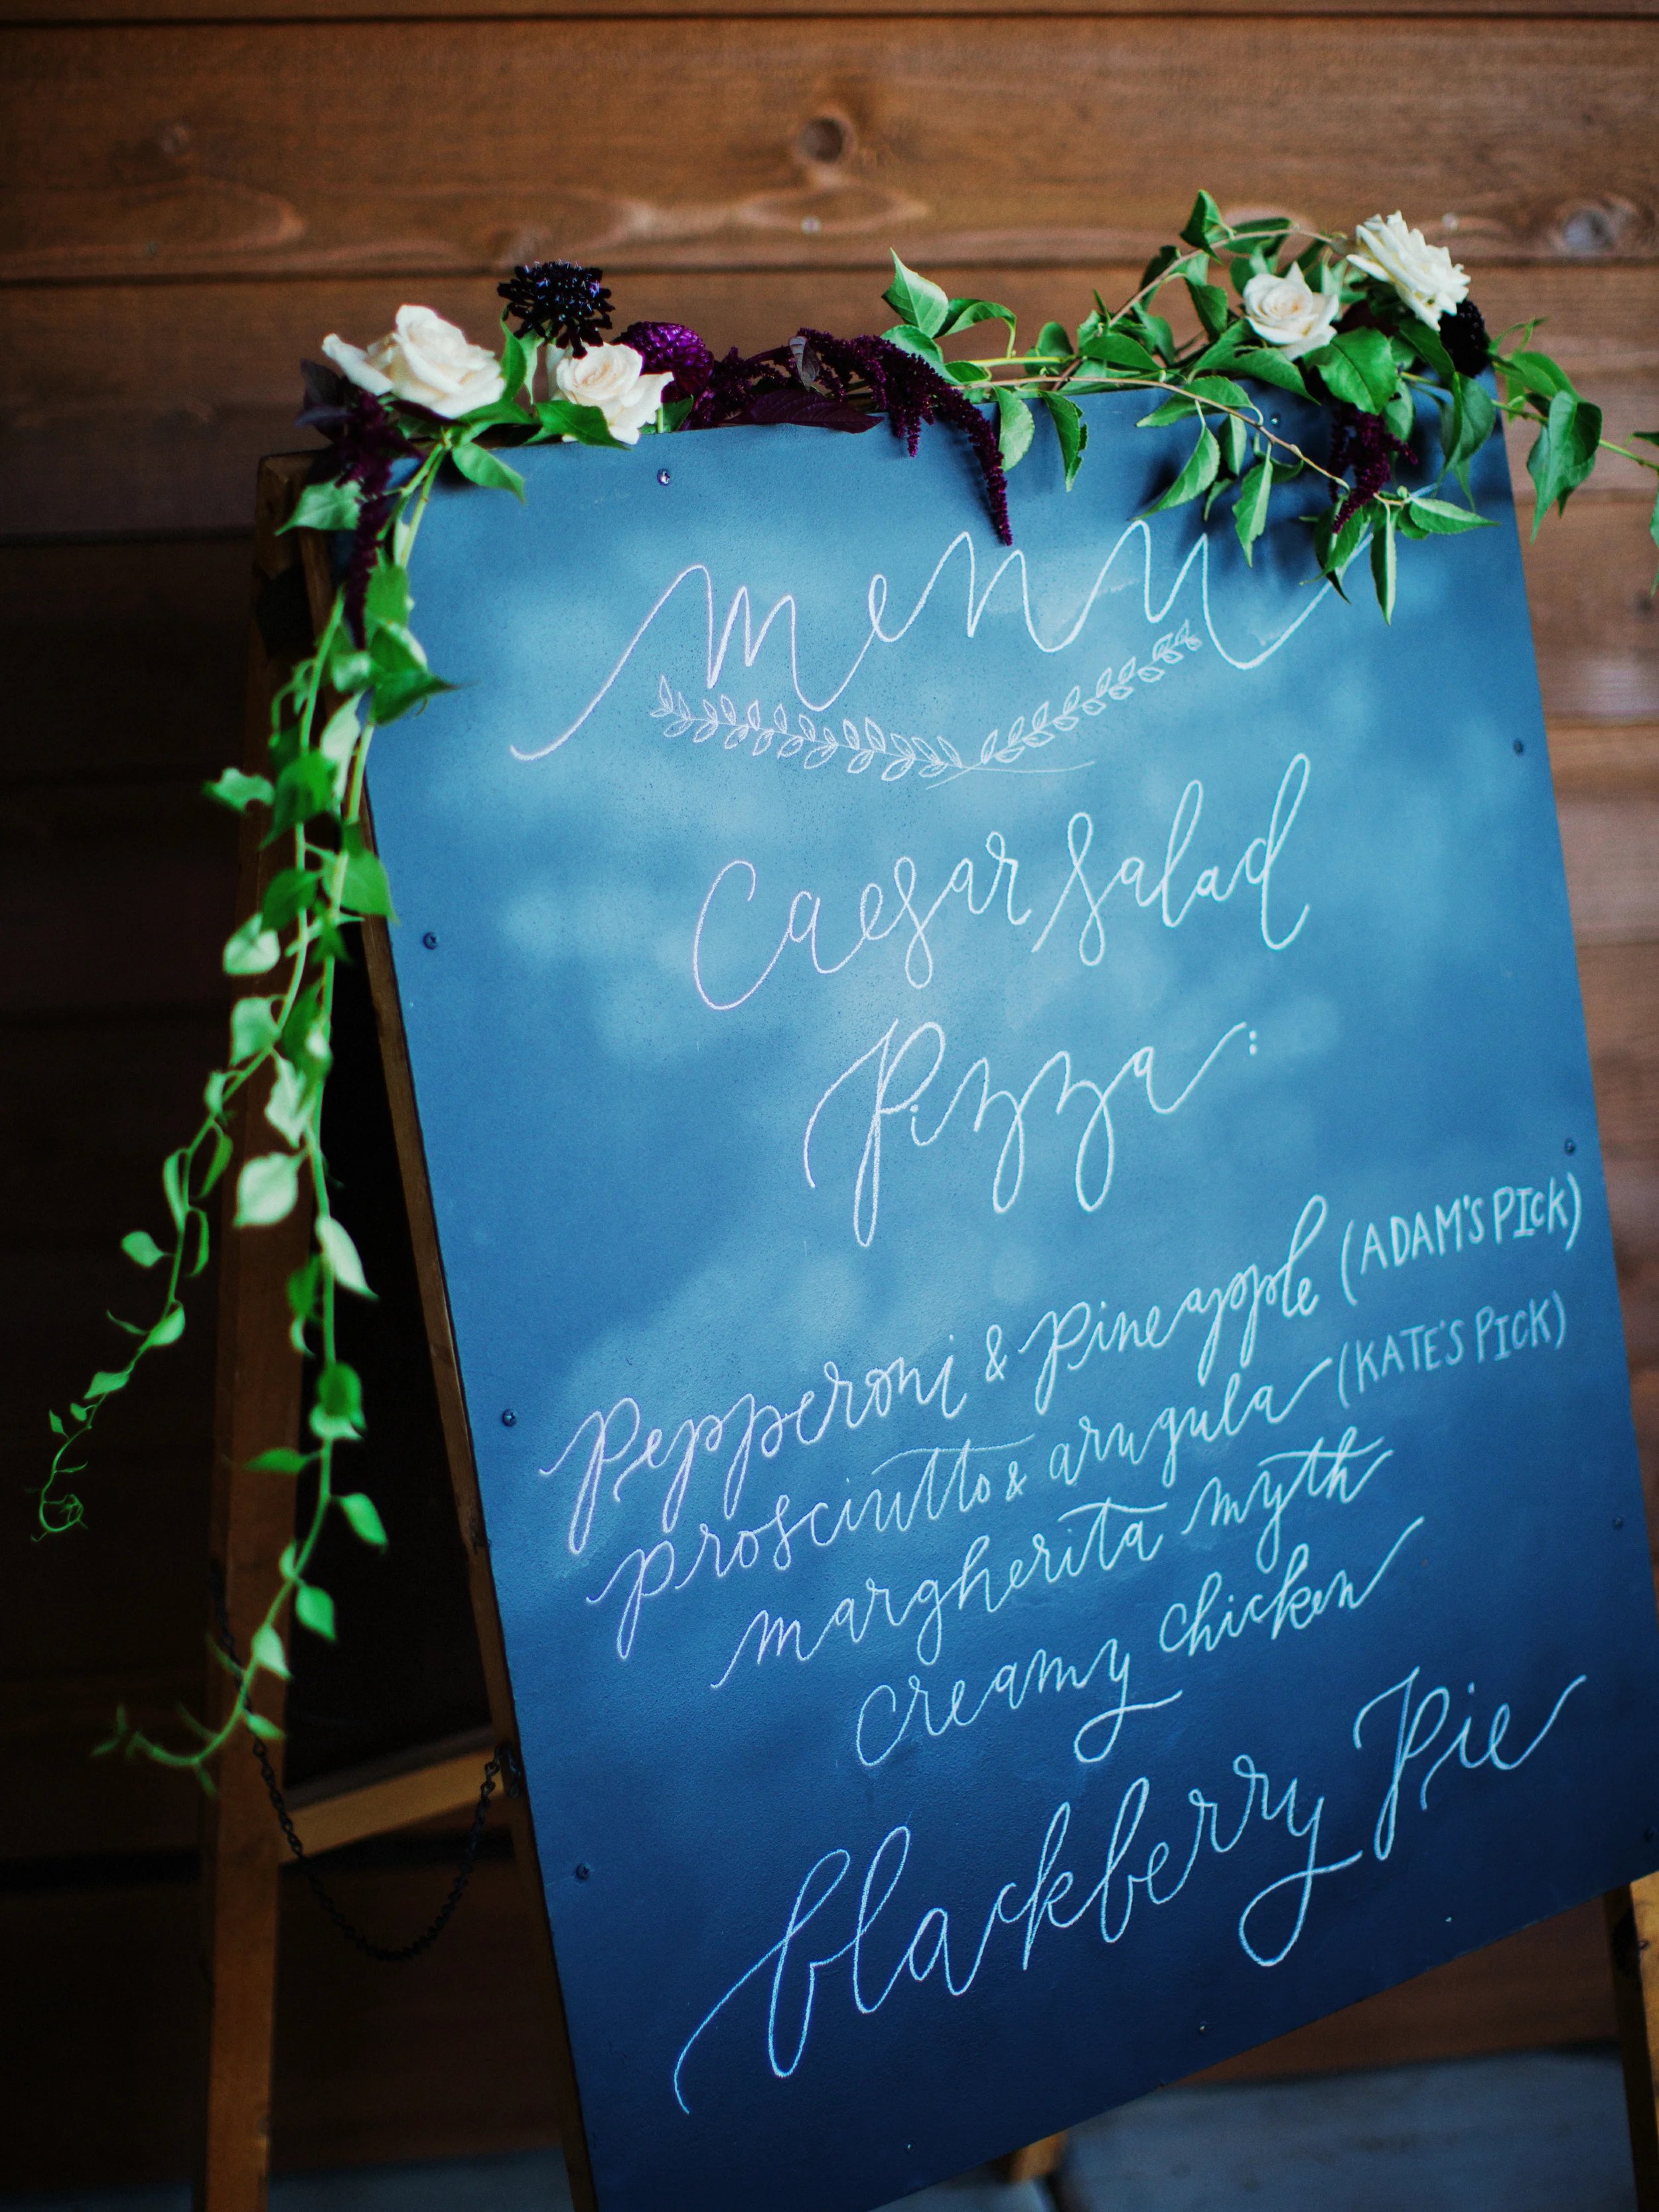 menu
Caesar Salad
Pizza:
Pepperoni & pineapple (ADAM'S PICK)
prosciutto & arugula (KATE'S PICK)
margherita myth
creamy chicken
blackberry Pie